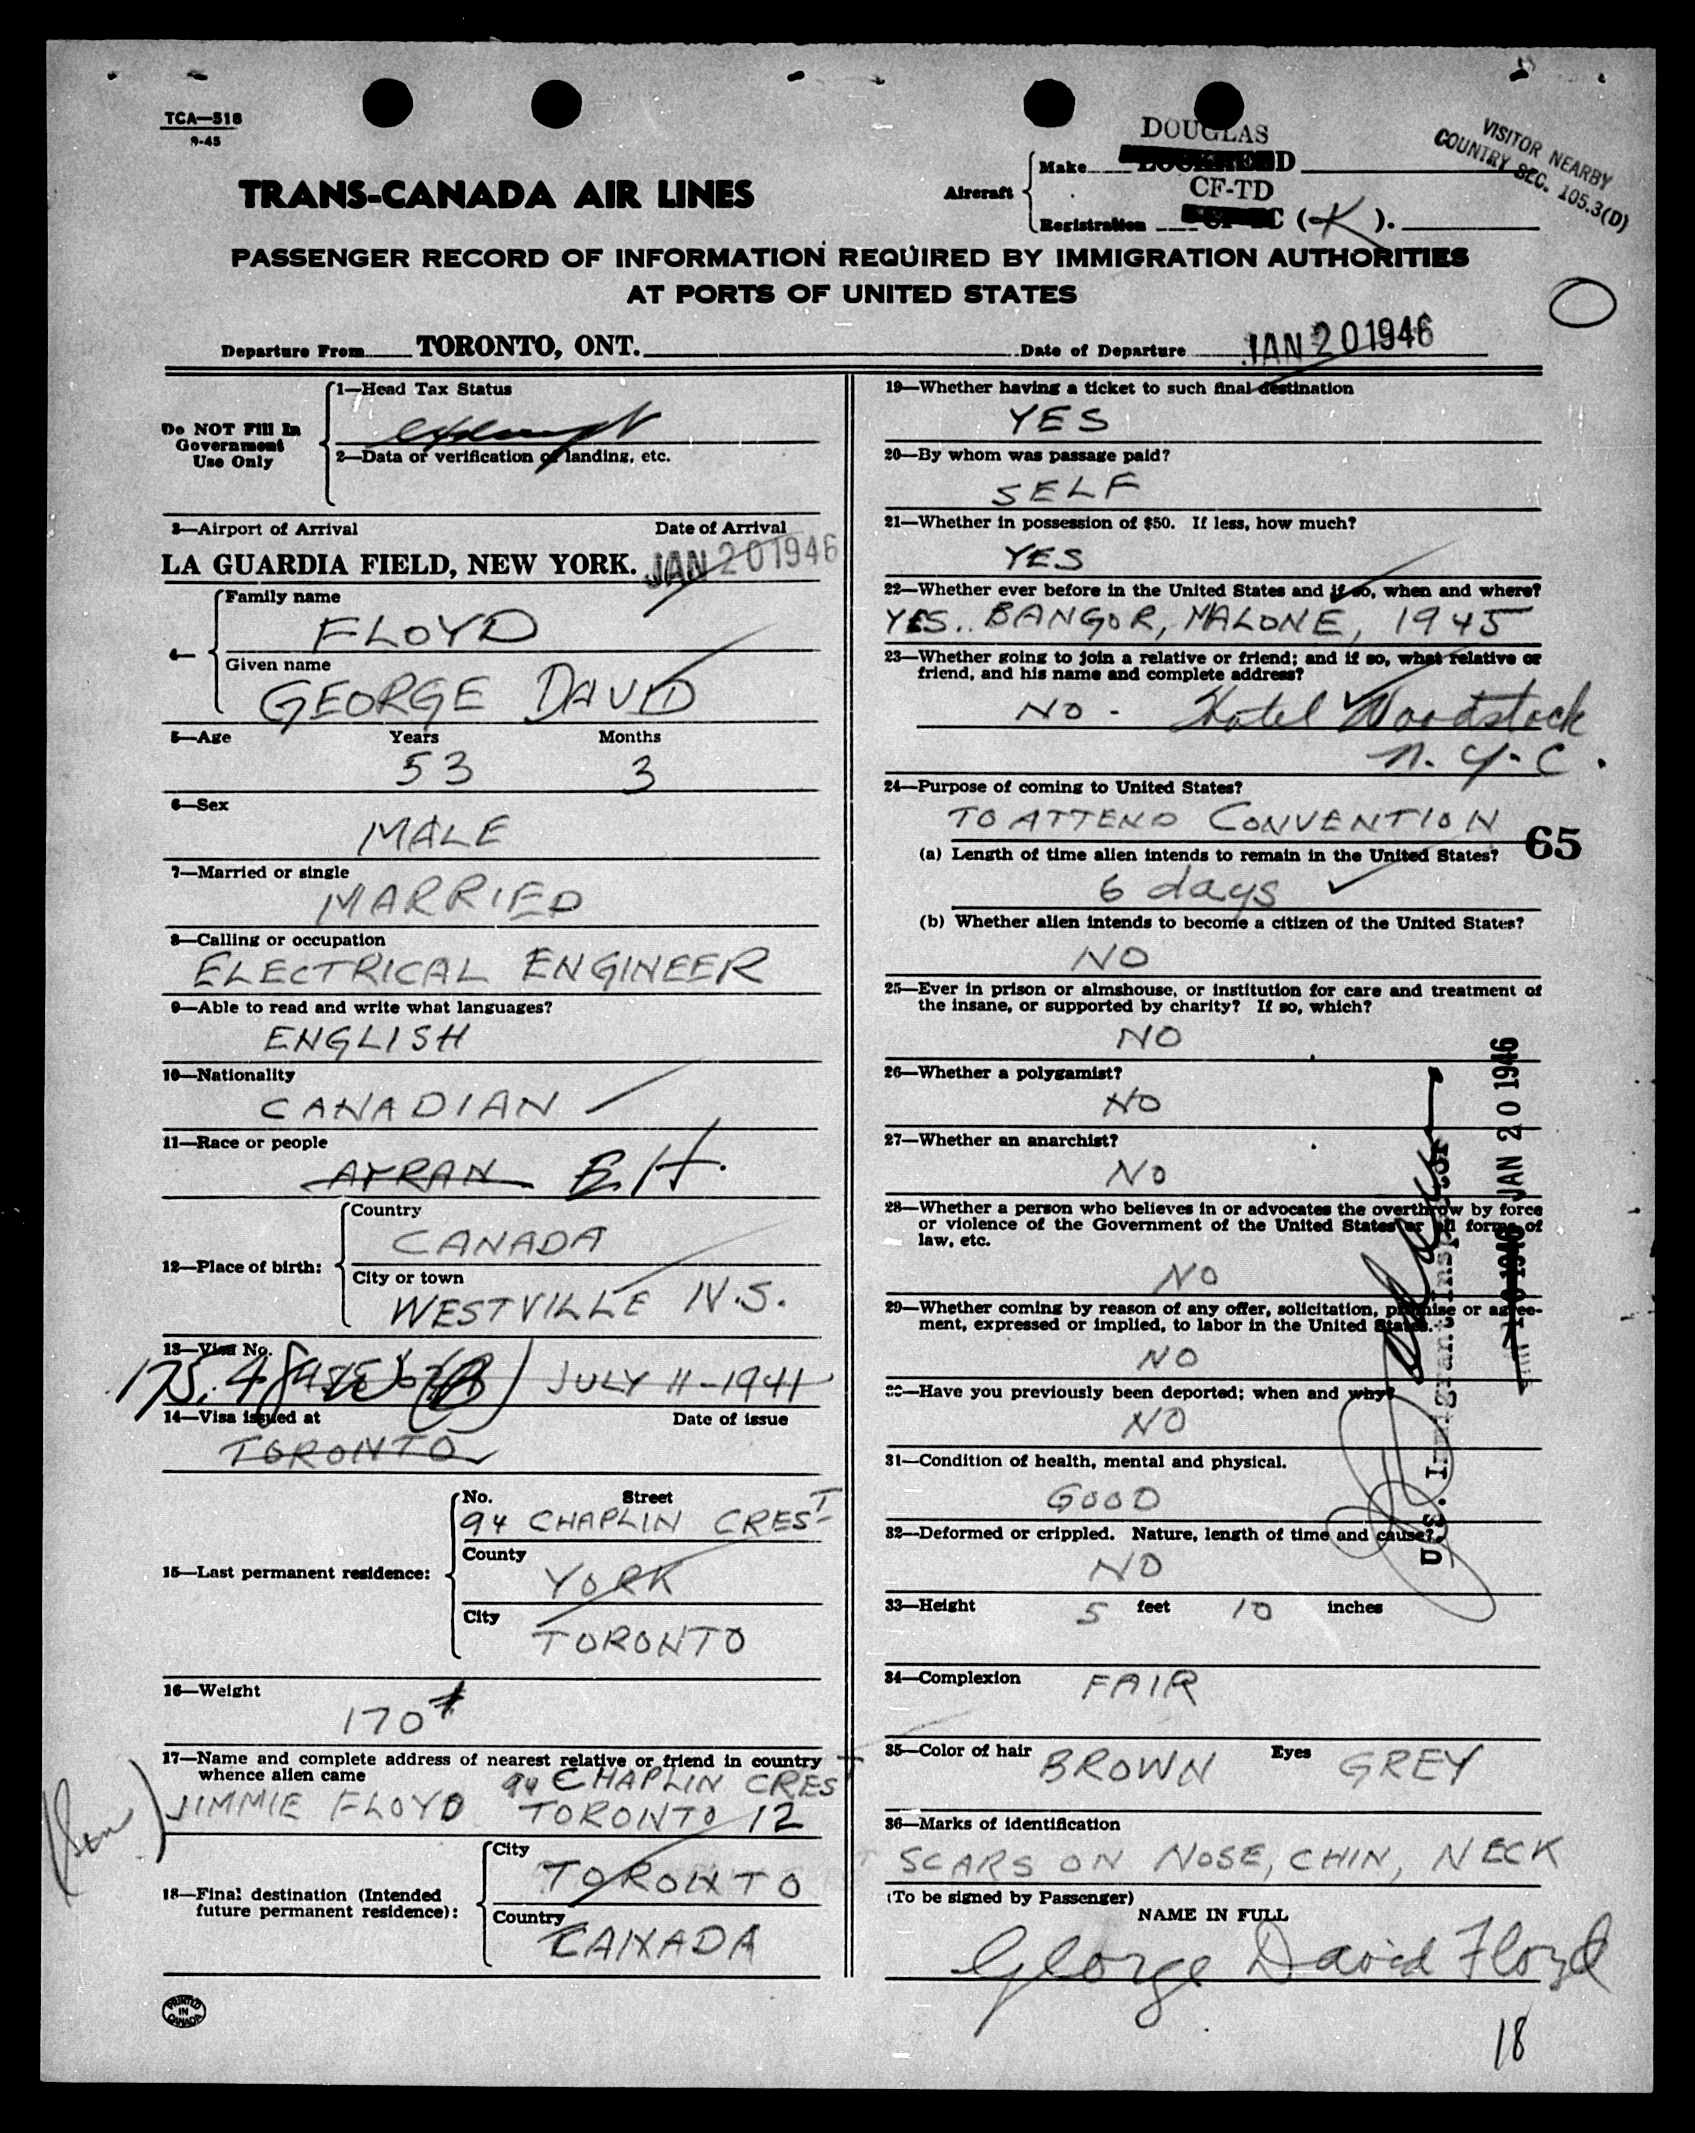 TCA—518
9-45
VISITOR NEARBY
COUNTRY SEC. 105.3(D)
DOUGLAS
Aircraft
Make
CF-TD
Registration (K).
TRANS-CANADA AIR LINES
PASSENGER RECORD OF INFORMATION REQUIRED BY IMMIGRATION AUTHORITIES
AT PORTS OF UNITED STATES
Departure From TORONTO, ONT. Date of Departure JAN 20 1946
Do NOT Fill In
Government
Use Only
1—Head Tax Status
2—Data or verification of landing, etc.
3—Airport of Arrival Date of Arrival
LA GUARDIA FIELD, NEW YORK. JAN 20 1946
4—
Family name
FLOYD
Given name
GEORGE DAVID
5—Age Years Months
53 3
6—Sex
MALE
7—Married or single
MARRIED
8—Calling or occupation
ELECTRICAL ENGINEER
9—Able to read and write what languages?
ENGLISH
10—Nationality
CANADIAN
11—Race or people
AYRAN
12—Place of birth:
Country
CANADA
City or town
WESTVILLE N.S.
13—Visa No.
175.4 JULY 11-1941
14—Visa issued at Date of issue
TORONTO
15—Last permanent residence:
No. Street
94 CHAPLIN CREST
County
YORK
City
TORONTO
16—Weight
170#
17—Name and complete address of nearest relative or friend in country
whence alien came
94 CHAPLIN CREST
(Son) JIMMIE FLOYD TORONTO 12
18—Final destination (Intended
future permanent residence):
City
TORONTO
Country
CANADA
PRINTED
IN
CANADA
19—Whether having a ticket to such final destination
YES
20—By whom was passage paid?
SELF
21—Whether in possession of $50. If less, how much?
YES
22—Whether ever before in the United States and if so, when and where?
YES.. BANGOR, MALONE, 1945
23—Whether going to join a relative or friend; and if so, what relative or
friend, and his name and complete address?
NO - Hotel Woodstock
N.Y.C.
24—Purpose of coming to United States?
TO ATTEND CONVENTION
65
(a) Length of time alien intends to remain in the United States?
6 days
(b) Whether alien intends to become a citizen of the United States?
NO
25—Ever in prison or almshouse, or institution for care and treatment of
the insane, or supported by charity? If so, which?
NO
26—Whether a polygamist?
NO
27—Whether an anarchist?
NO
28—Whether a person who believes in or advocates the overthrow by force
or violence of the Government of the United States or all forms of
law, etc.
NO
29—Whether coming by reason of any offer, solicitation, promise or agree-
ment, expressed or implied, to labor in the United States.
NO
30—Have you previously been deported; when and why?
NO
31—Condition of health, mental and physical.
GOOD
32—Deformed or crippled. Nature, length of time and cause?
NO
33—Height 5 feet 10 inches
34—Complexion FAIR
35—Color of hair BROWN Eyes GREY
36—Marks of identification
SCARS ON NOSE, CHIN, NECK
(To be signed by Passenger)
NAME IN FULL
George David Floyd
18
JAN 20 1946
U.S. Immigrant Inspector